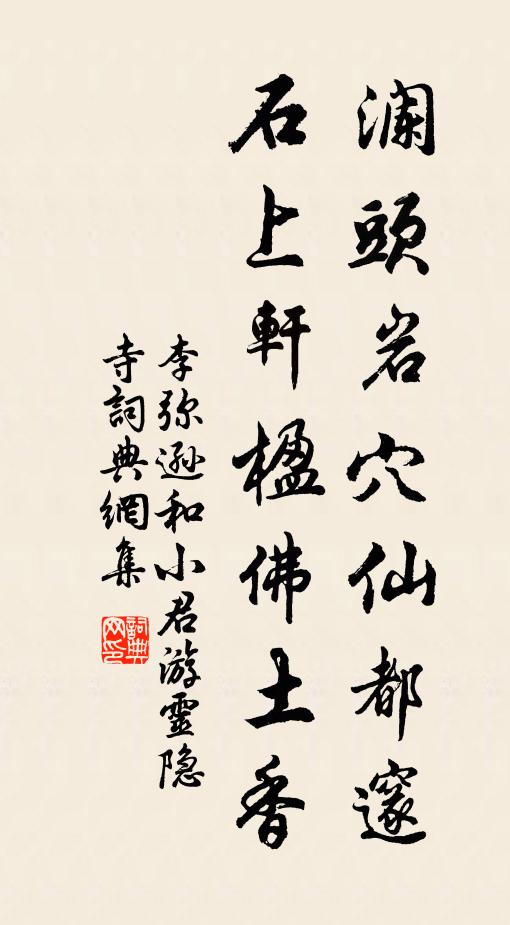 澜頭岩穴仙都邃
石上軒楹佛土香
李弥遜和小君游靈隐
寺詞典網集
詞典网印